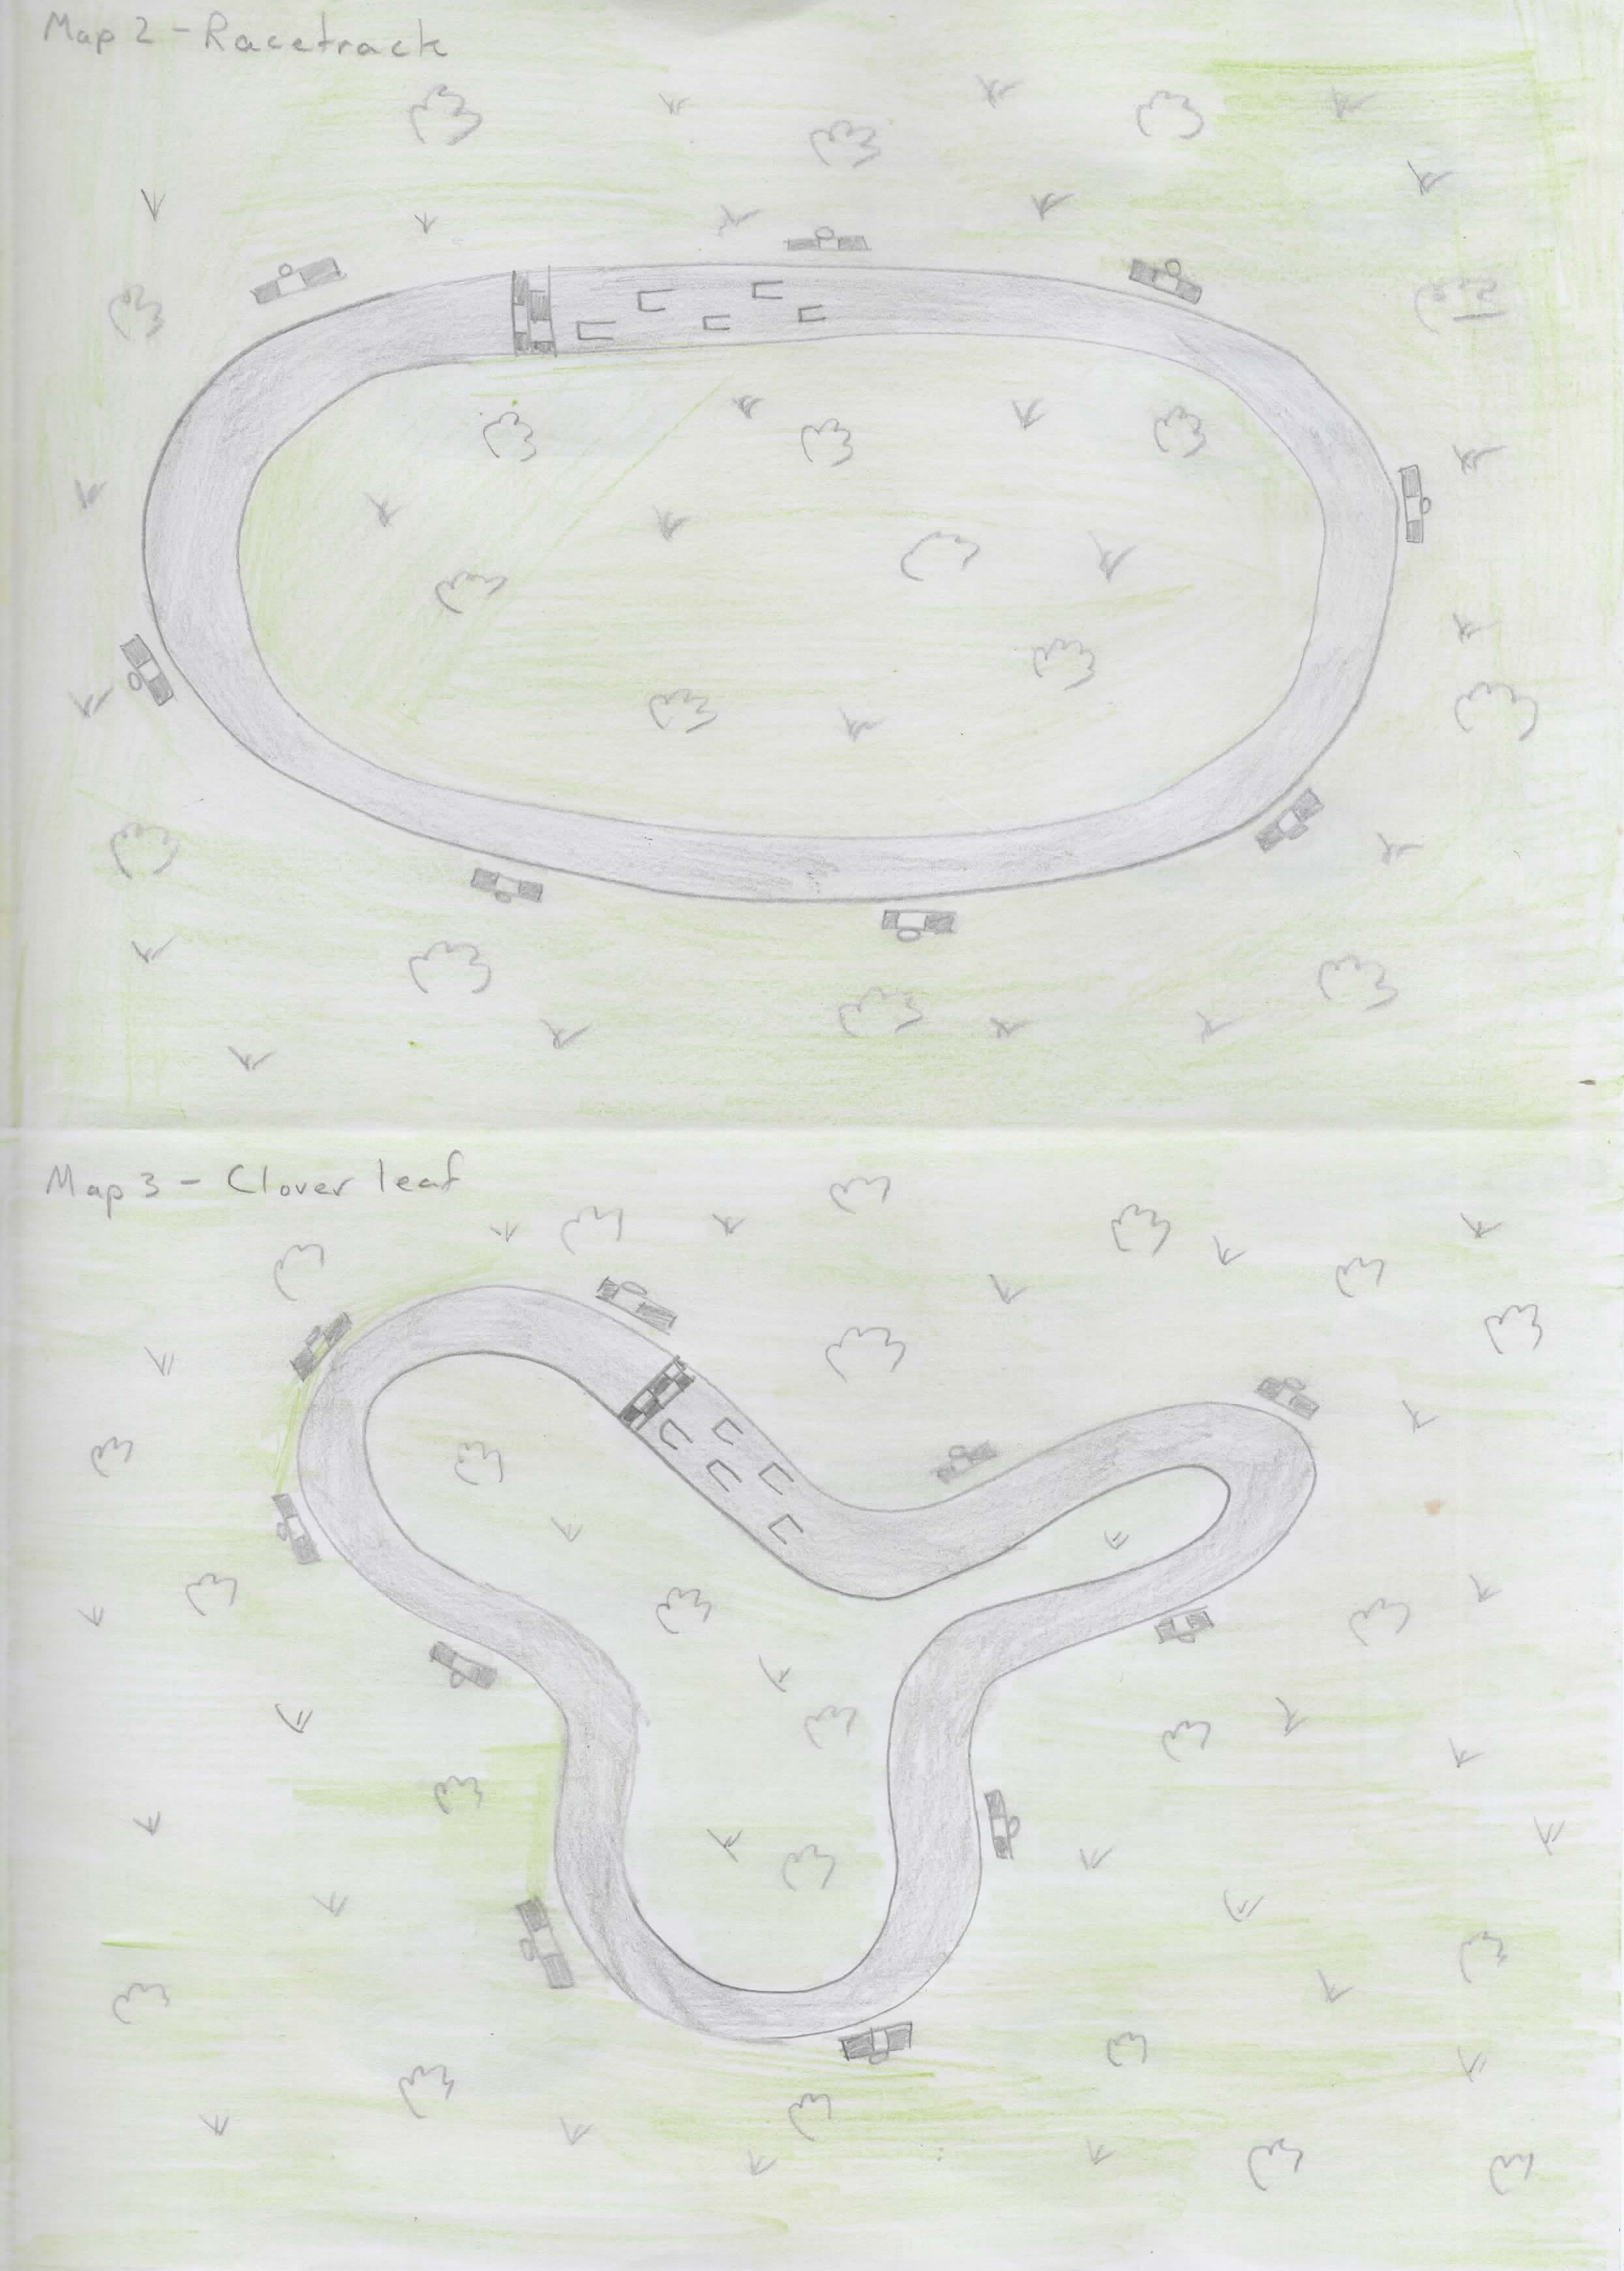 Map 2 - Racetrack
Map 3 - Clover leaf